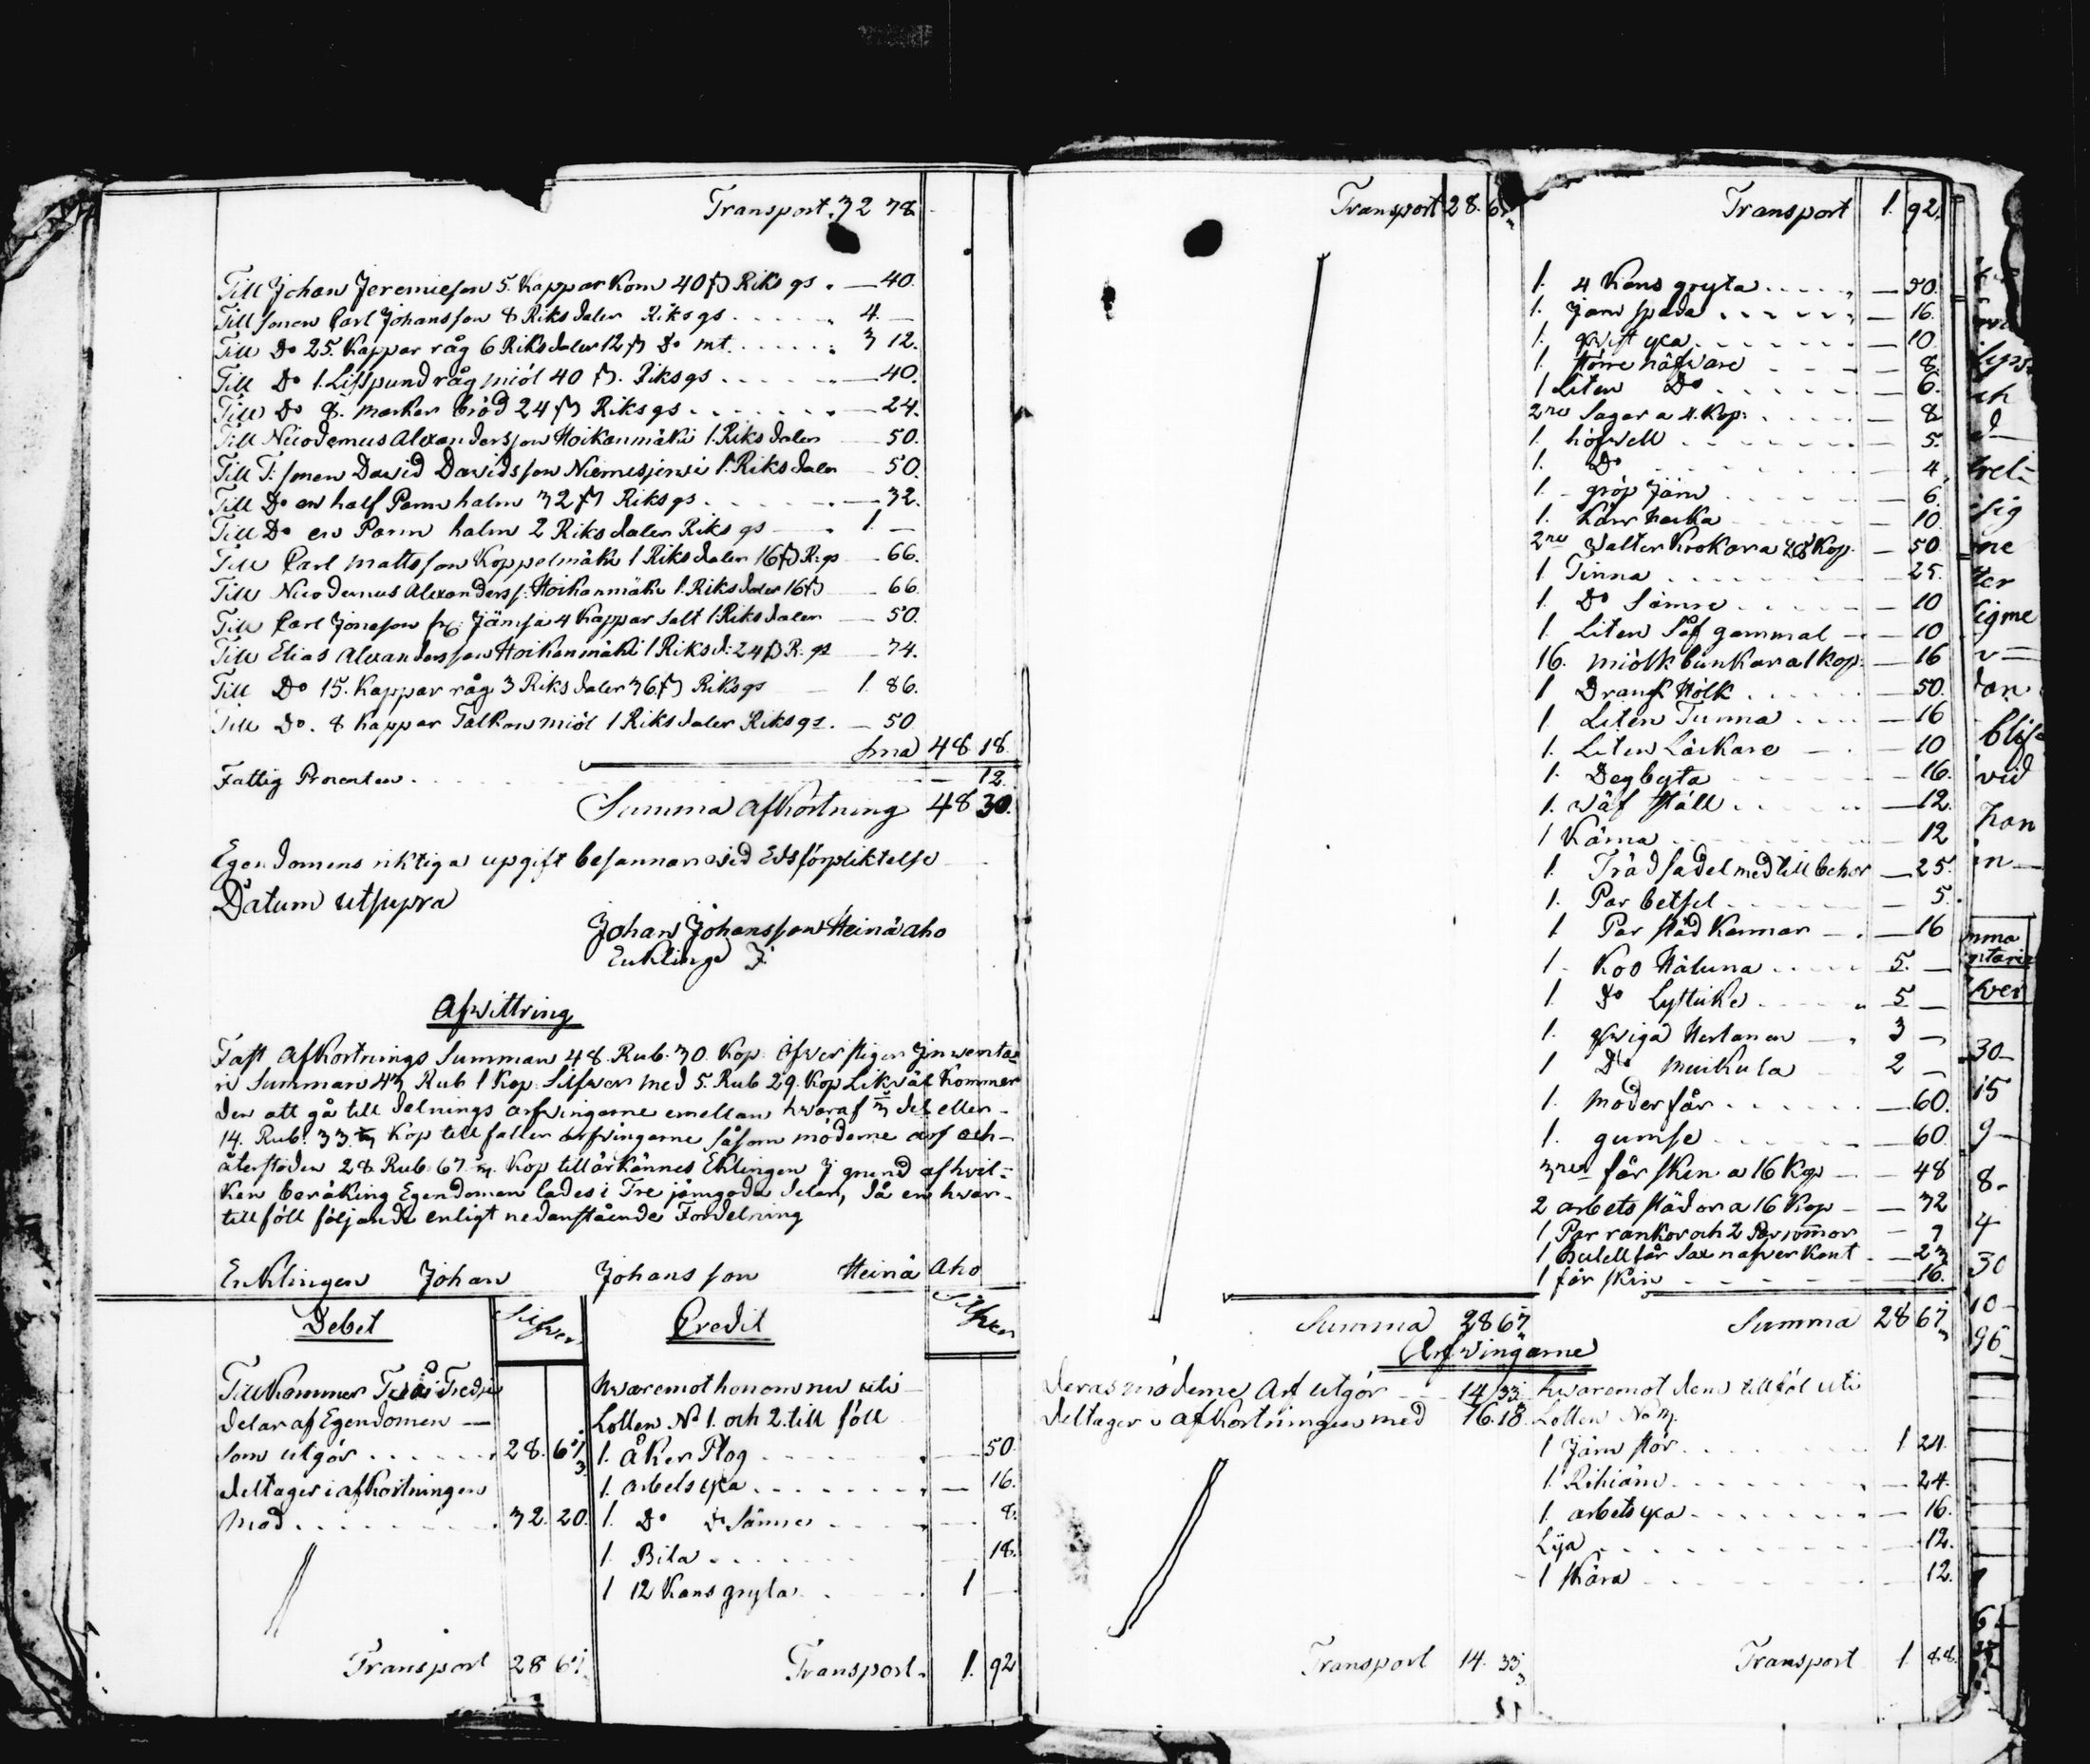 Transport. 32 78
Till Johan Jeremieson 5. Kappar Korn 40 ß Riksgs. — 40.
Till sonen Carl Johansson 8 Riksdaler Riksgs. 4. —
Till Do 25. Kappar råg 6 Riksdaler 12 ß Do mt. 3 12.
Till Do 1. Lisspund råg miöl 40 ß. Riksgs — 40.
Till Do 8. marker bröd 24 ß Riksgs — 24.
Till Nicodemus Alexandersson Hoikanmäki 1. Riksdaler — 50.
Till T: sonen David Davidsson Niemisjerwi 1. Riksdaler — 50.
Till Do en half Parm halm 32 ß Riksgs. — 32.
Till Do en Parm halm 2 Riksdaler Riksgs 1. —
Till Carl Mattsson Koppelmäki 1 Riksdaler 16 ß R:gs — 66.
Till Nicodemus Alexanderss: Hoikanmäki 1. Riksdaler 16 ß — 66.
Till Carl Jonasson Jämsä 4 Kappar Salt 1. Riksdaler — 50.
Till Elias Alexandersson Hoikanmäki 1 Riksd: 24 ß R. gs — 74.
Till Do 15. Kappar råg 3 Riksdaler 36 ß Riksgs 1. 86.
Till Do. 8 Kappar Talkon miöl 1 Riksdaler Riksgs. — 50
Sma 48 18.
Fattig Procenten 12.
Summa Afkortning 48 30.
Egendomens riktiga upgift besannar wid Edsförpliktelse
Datum utsupra
Johan Johansson Heinäaho
Enkling
Afwittring
Fast Afkortnings Summan 48. Rub. 30. Kop. öfwerstiger Inventa=
rii Summan 43 Rub 1 Kop. Silfwer med 5. Rub 29. Kop Likväl Kommer
den att gå till delnings arfwingarne emellan hwaraf del eller -
14. Rub. 33. Kop tillfaller arfwingarne såsom möderne arf och -
återstoden 28 Rub 67 Kop tillärkännes Enklingen I grund af hwil=
ken beräking Egendomen lades i Tre jämgoda delar, då en hwar -
tillföll följande enligt nedanstående Fördelning
Enklingen Johan Johansson Heinä Aho
Debet Silfwer Credit Silfwer
Tillkommer Två Tredje
delar af Egendomen —
som utgör 28. 67
deltager i afkortningen
med 32. 20.
Transport 28 67
hwaremot honom nu uti
Lotten No 1. och 2. till föll
1. Åker Plog — 50.
1. arbets yxa — 16.
1. Do Do Sämre — 8.
1. Bila — 18.
1 12 Kans gryta 1 —
Transport. 1. 92
Transport 28. 67
Summa 28 67
Transport 1. 92.
1. 4 Kans gryta — 50.
1. Järn spada — 16.
1. qwist yxa — 10
1. större näfware — 8.
1 Liten Do — 6.
2ne Sagar a 4. Kop: — 8
1. höfwell — 5.
1. Do — 4
1. gröp Järn — 6.
1. Korn Hacka — 10
2ne Walter Krokar a Kop. — 50
1 Tinna 25.
1. Do Sämre — 10
1. Liten Såf gammal — 10
16. miölk bunkar a 1 kop. — 16
1 Drank Hölk — 50.
1 Liten Tunna — 16
1. Liten Läckare — 10
1. Degbytta — 16.
1. Wäf ställ — 12.
1 Kärna — 12
1. Träd sadel med tillbehör — 25.
1. Par betsel — 5.
1 Par städ Kannar — 16
1. Koo Häluna 5. —
1. Do Lystike 5 —
1. qwiga Hertanen 3 —
1 Do Muikula 2 —
1. Moder får — 60.
1. gumse — 60
3ne får sken a 16 Kop — 48
2 arbets städor a 16 Kop — 32
1 Par rankor och 2 Par — 7
— 23
1 får skin — 16.
Summa 28 67
Arfwingarne
deras möderne Arf utgör 14/33
deltager i afkortningen med 16.18
Transport 14. 33
hwaremot dem tillföl uti
Lotten No 3.
1 Järn stör 1 24.
1. Rihiärn — 24.
1. arbets yxa — 16.
Lija — 12.
1 Skära 12.
Transport 1 88.